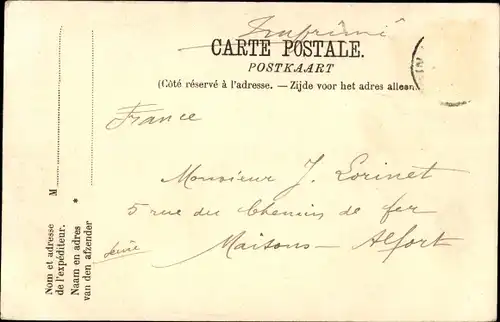 Imprimé
CARTE POSTALE.
POSTKAART
(Côté réservé à l'adresse. — Zijde voor het adres alleen.)
France
Monsieur J. Lorinet
5 rue du Chemin de fer
Maisons-Alfort
Seine
M
Nom et adresse
de l'expéditeur.
*
Naam en adres
van den afzender